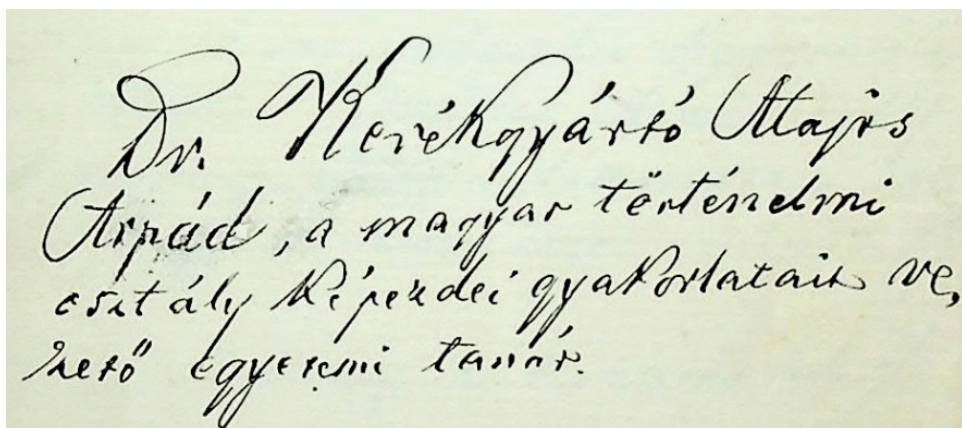 Dr. Kerékgyártó Alajos
Árpád, a magyar történelmi
osztály képezdei gyakorlatait ve,
zető egyetemi tanár.